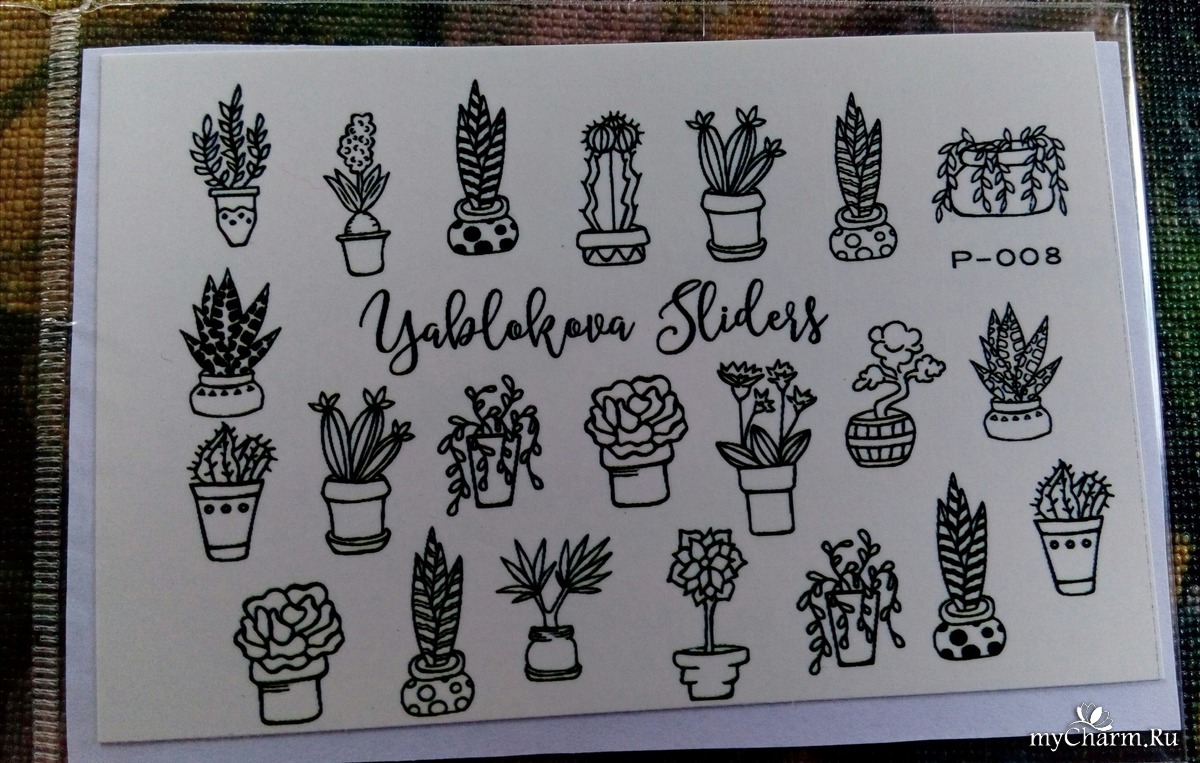 P-008
Yablokova Sliders
myCharm.Ru